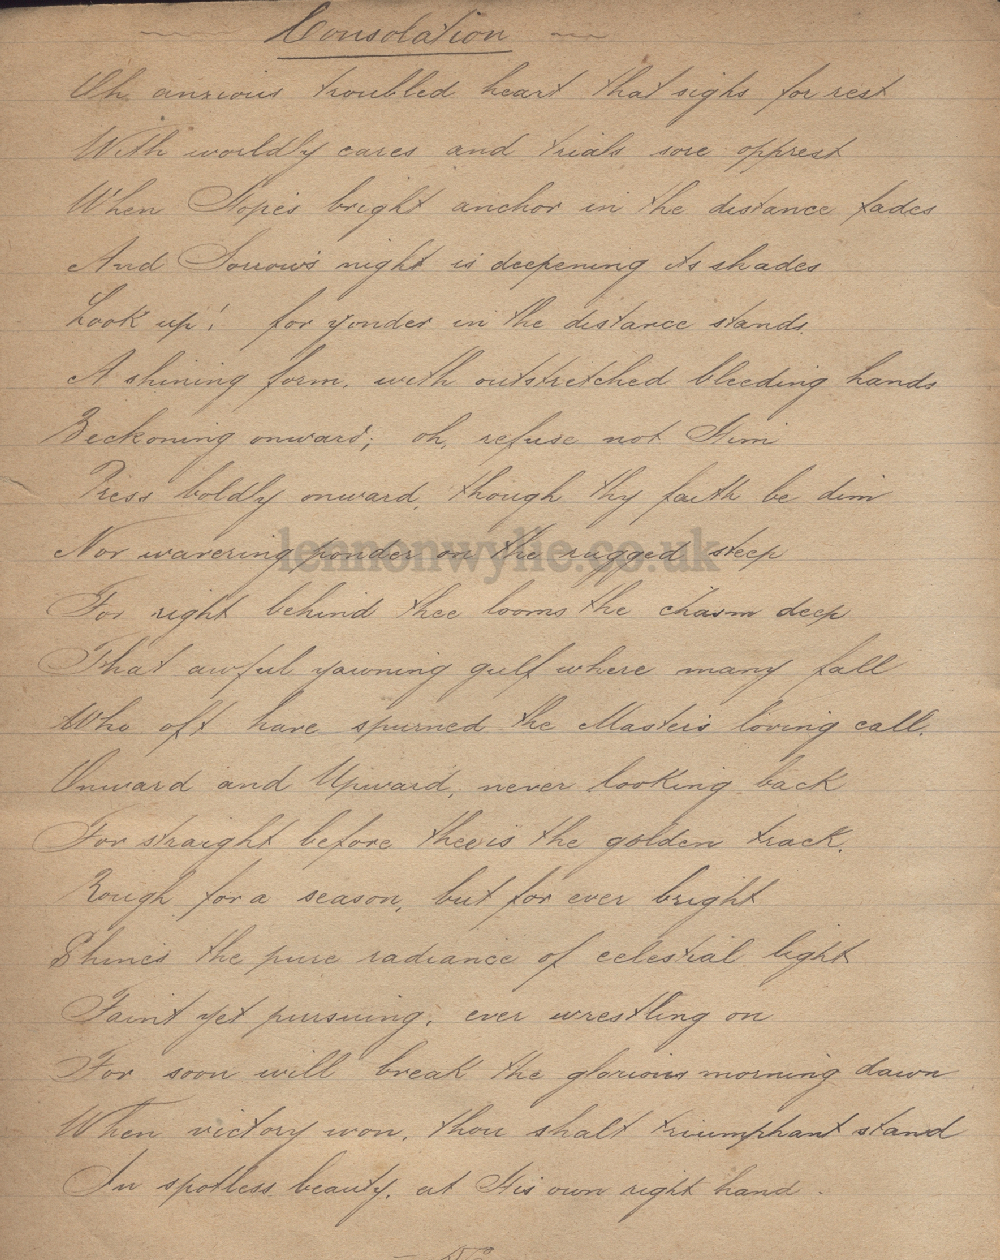 Consolation
Oh, anxious troubled heart that sighs for rest
With worldly cares and trials sore opprest
When Hope's bright anchor in the distance fades
And Sorrow's night is deepening its shades
Look up! for yonder in the distance stands.
A shining form, with outstretched bleeding hands
Beckoning onward; oh, refuse not Him
Press boldly onward, though thy faith be dim
Nor wavering ponder on the rugged steep
For right behind thee looms the chasm deep
That awful yawning gulf where many fall
Who oft have spurned the Master's loving call.
Onward and Upward, never looking back
For straight before thee is the golden track.
Rough for a season, but for ever bright
Shines the pure radiance of celestial light
Faint yet pursuing, ever wrestling on
For soon will break the glorious morning dawn
When victory won, thou shalt triumphant stand
In spotless beauty, at His own right hand.
lennonwylie.co.uk